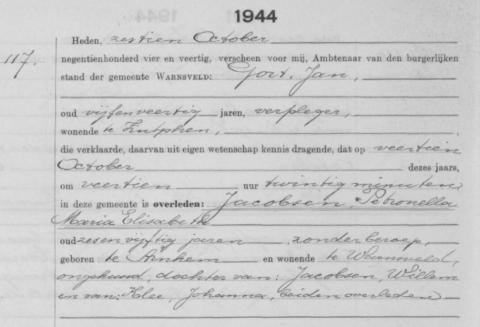 1944
Heden, zestien October
117. negentienhonderd vier en veertig, verscheen voor mij, Ambtenaar van den burgerlijken
stand der gemeente WARNSVELD: Gort, Jan,
oud vijfenveertig jaren, verpleger,
wonende te Zutphen,
die verklaarde, daarvan uit eigen wetenschap kennis dragende, dat op veertien
October dezes jaars,
om veertien uur twintig minuten
in deze gemeente is overleden: Jacobsen, Petronella
Maria Elisabeth
oud zesenvijftig jaren zonder beroep,
geboren te Arnhem en wonende te Warnsveld,
ongehuwd, dochter van: Jacobsen, Willem
en van: Klee, Johanna, beiden overleden